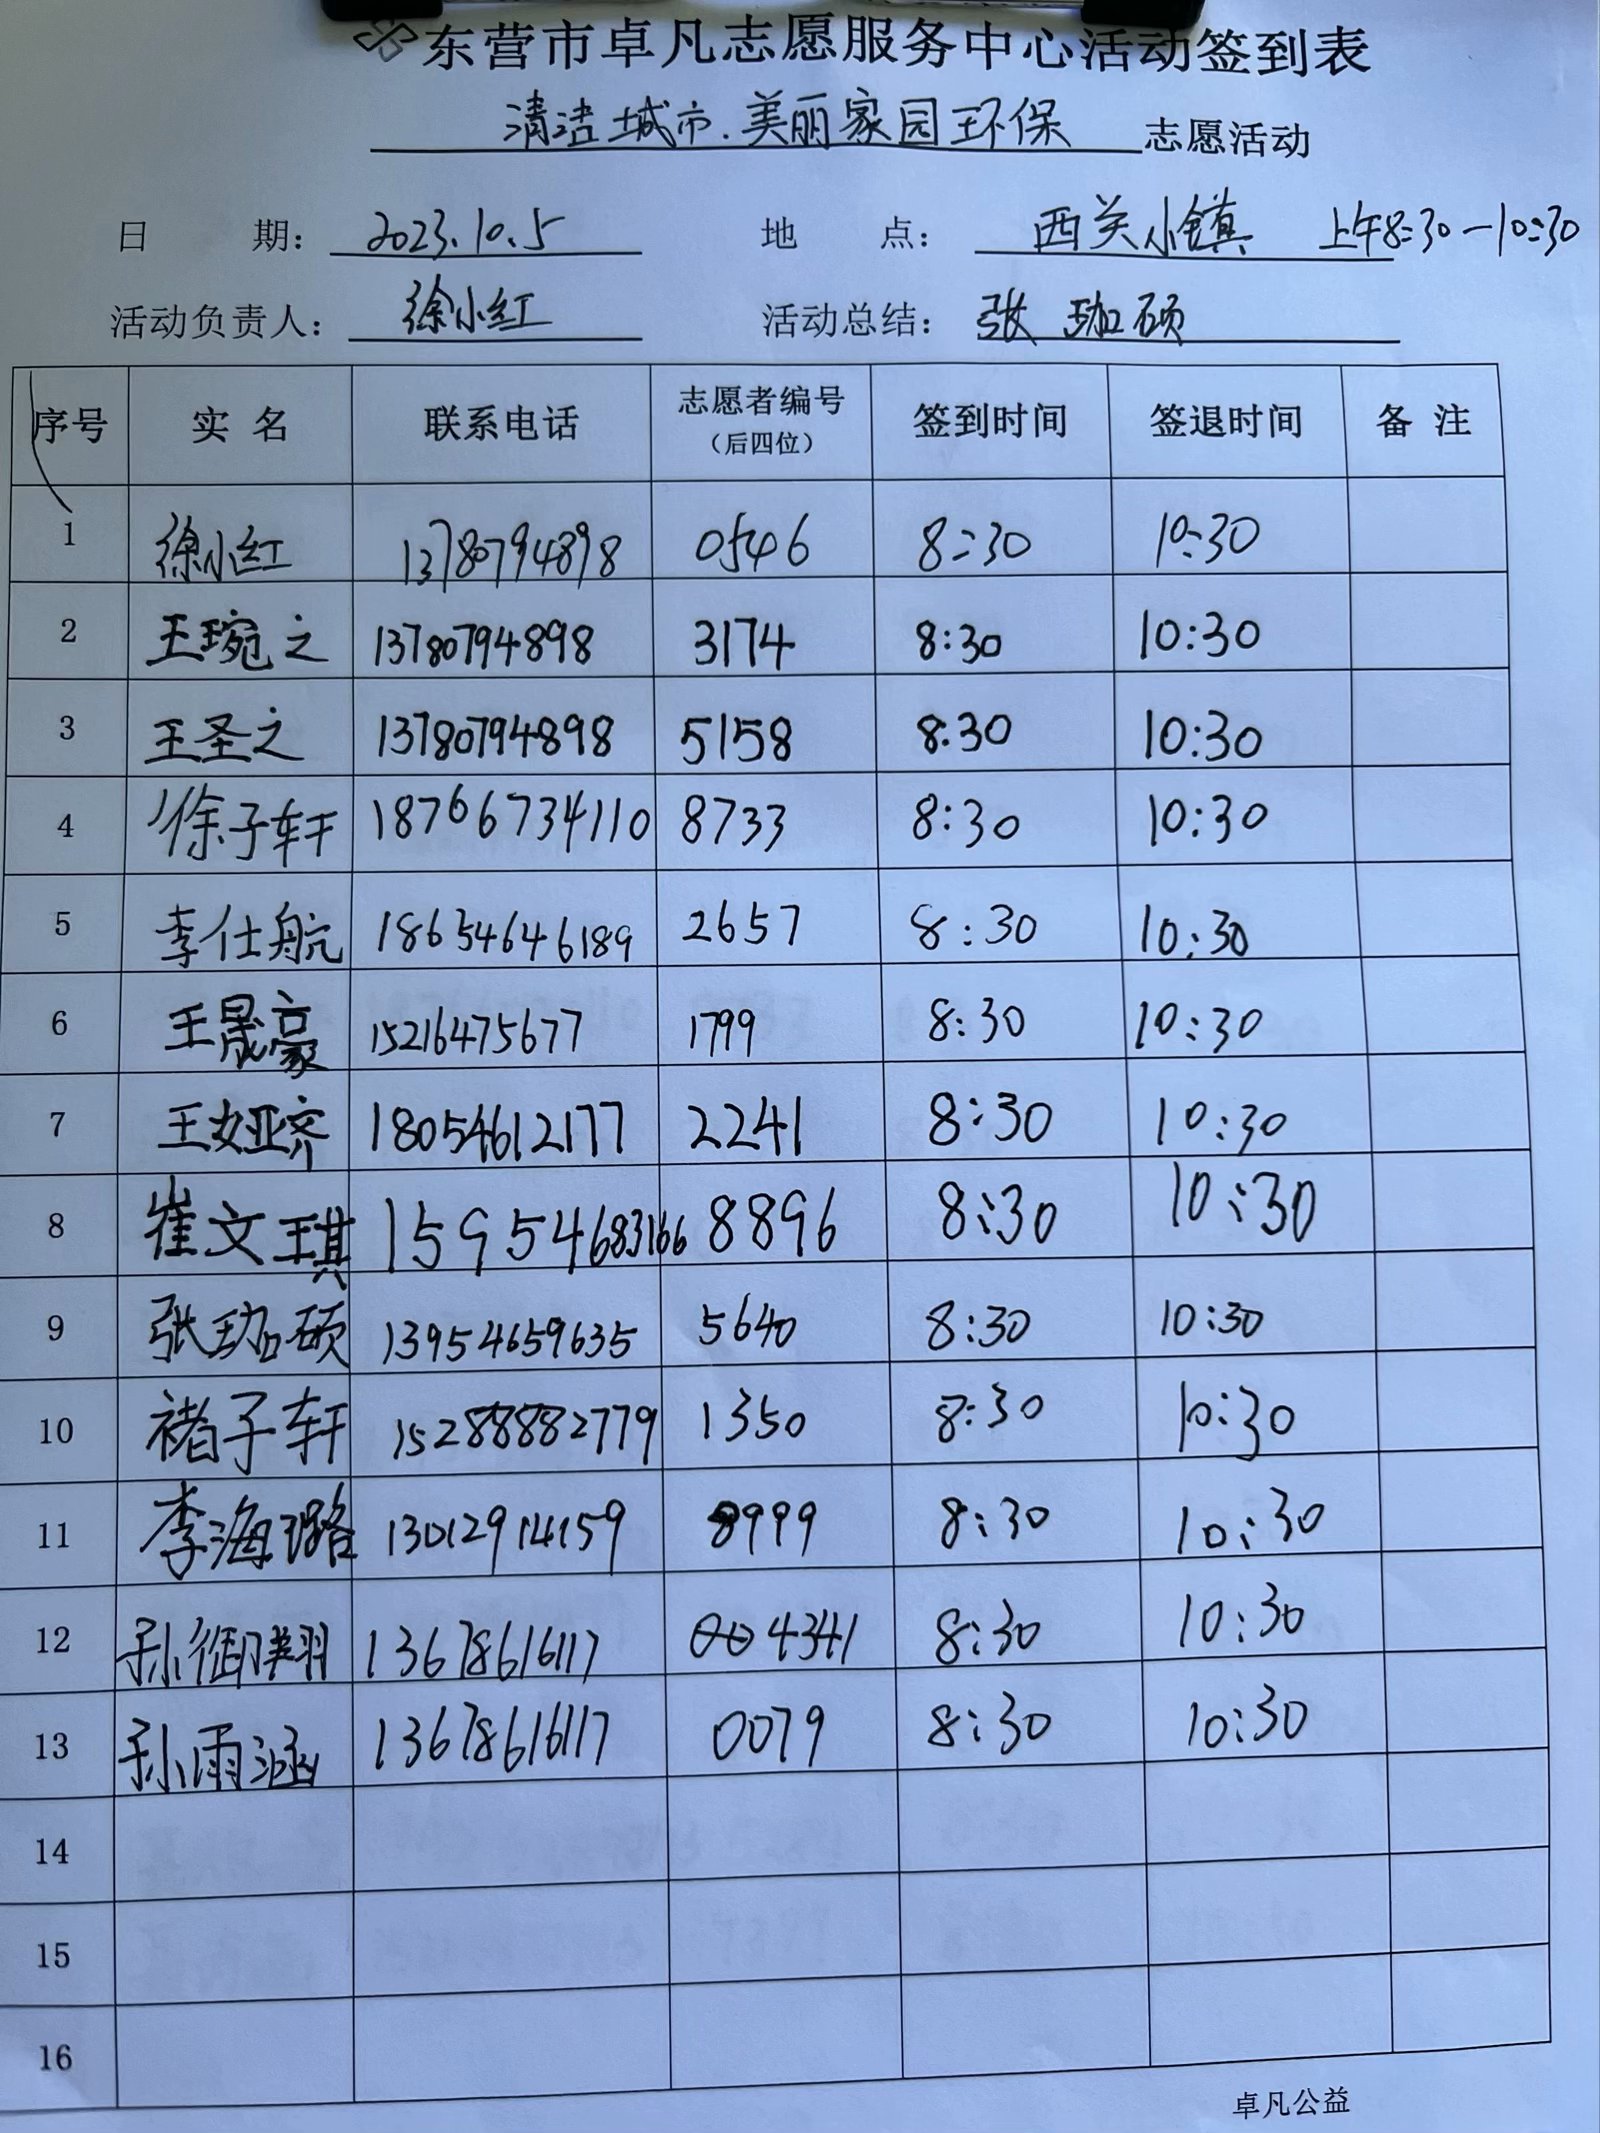 东营市卓凡志愿服务中心活动签到表
清洁城市.美丽家园环保 志愿活动
日 期： 2023.10.5 地 点： 西关小镇 上午8:30-10:30
活动负责人： 徐小红 活动总结： 张珈硕
序号 实 名 联系电话 志愿者编号（后四位） 签到时间 签退时间 备 注
1 徐小红 13780794898 0546 8:30 10:30
2 王琬之 13780794898 3174 8:30 10:30
3 王圣之 13780794898 5158 8:30 10:30
4 徐子轩 18766734110 8733 8:30 10:30
5 李仕航 18654646189 2657 8:30 10:30
6 王晟豪 15216475677 1799 8:30 10:30
7 王娅齐 18054612177 2241 8:30 10:30
8 崔文琪 15954683166 8896 8:30 10:30
9 张珈硕 13954659635 5640 8:30 10:30
10 褚子轩 15288882779 1350 8:30 10:30
11 李海璐 13012914159 8999 8:30 10:30
12 孙御祺翔 13678616117 4341 8:30 10:30
13 孙雨涵 13678616117 0079 8:30 10:30
14
15
16
卓凡公益